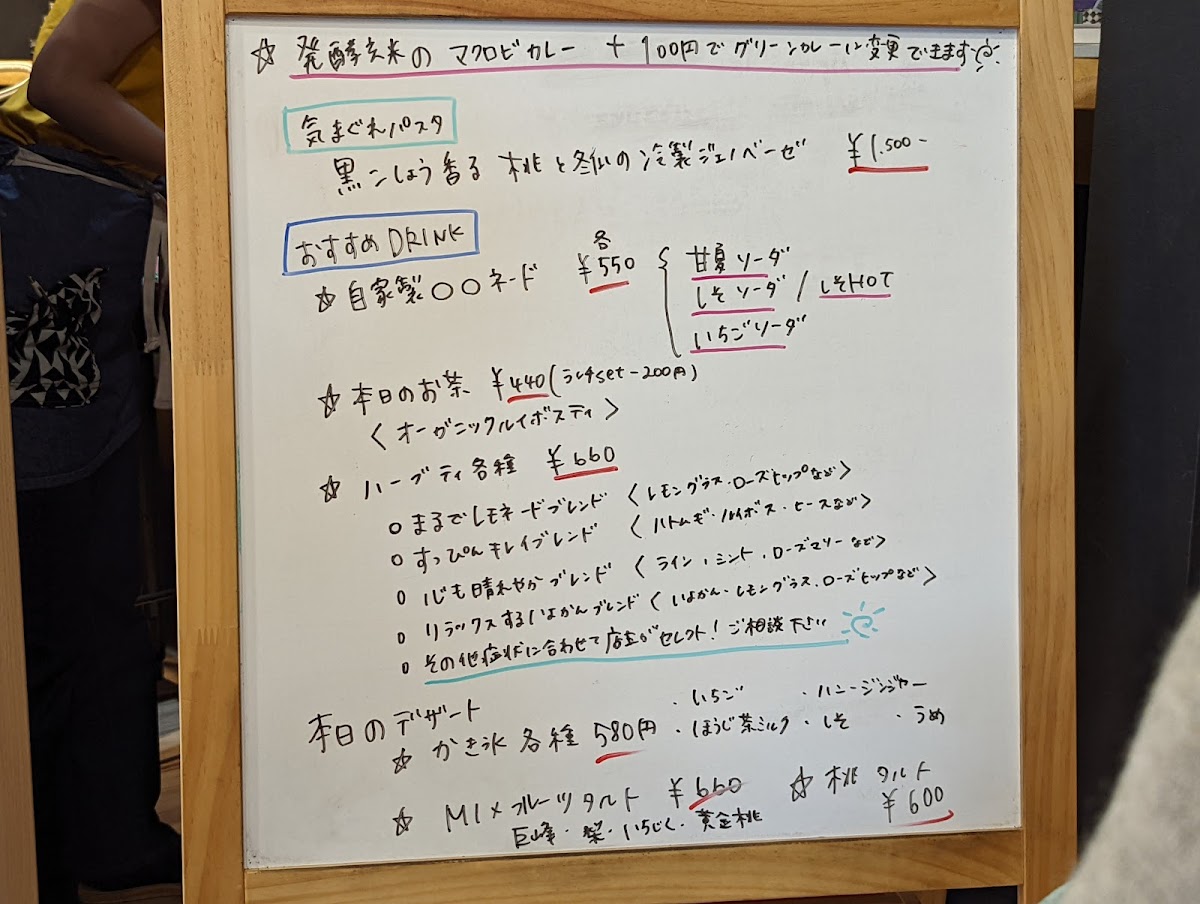 ☆ 発酵玄米の マクロビカレー + 100円で グリーンカレーに変更できます
気まぐれパスタ
黒こしょう香る 桃と冬瓜の冷製ジェノベーゼ ¥1.500-
おすすめ DRINK
☆ 自家製〇〇ネード 各 ¥550
甘夏ソーダ
しそソーダ / しそHOT
いちごソーダ
☆ 本日のお茶 ¥440 (ランチset -200円)
〈オーガニックルイボスティ〉
☆ ハーブティ各種 ¥660
○ まるでレモネードブレンド 〈レモングラス・ローズヒップなど〉
○ すっぴんキレイブレンド 〈ハトムギ・ルイボス・ヒースなど〉
○ 心も晴れやかブレンド 〈ライン・ミント・ローズマリーなど〉
○ リラックスするいよかんブレンド 〈いよかん・レモングラス・ローズヒップなど〉
○ その他症状に合わせて店主がセレクト! ご相談下さい
本日のデザート
☆ かき氷 各種 580円 ・いちご ・ハニージンジャー
・ほうじ茶ミルク ・しそ ・うめ
☆ MIXフルーツタルト ¥660
巨峰・梨・いちじく・黄金桃
☆ 桃タルト
¥600